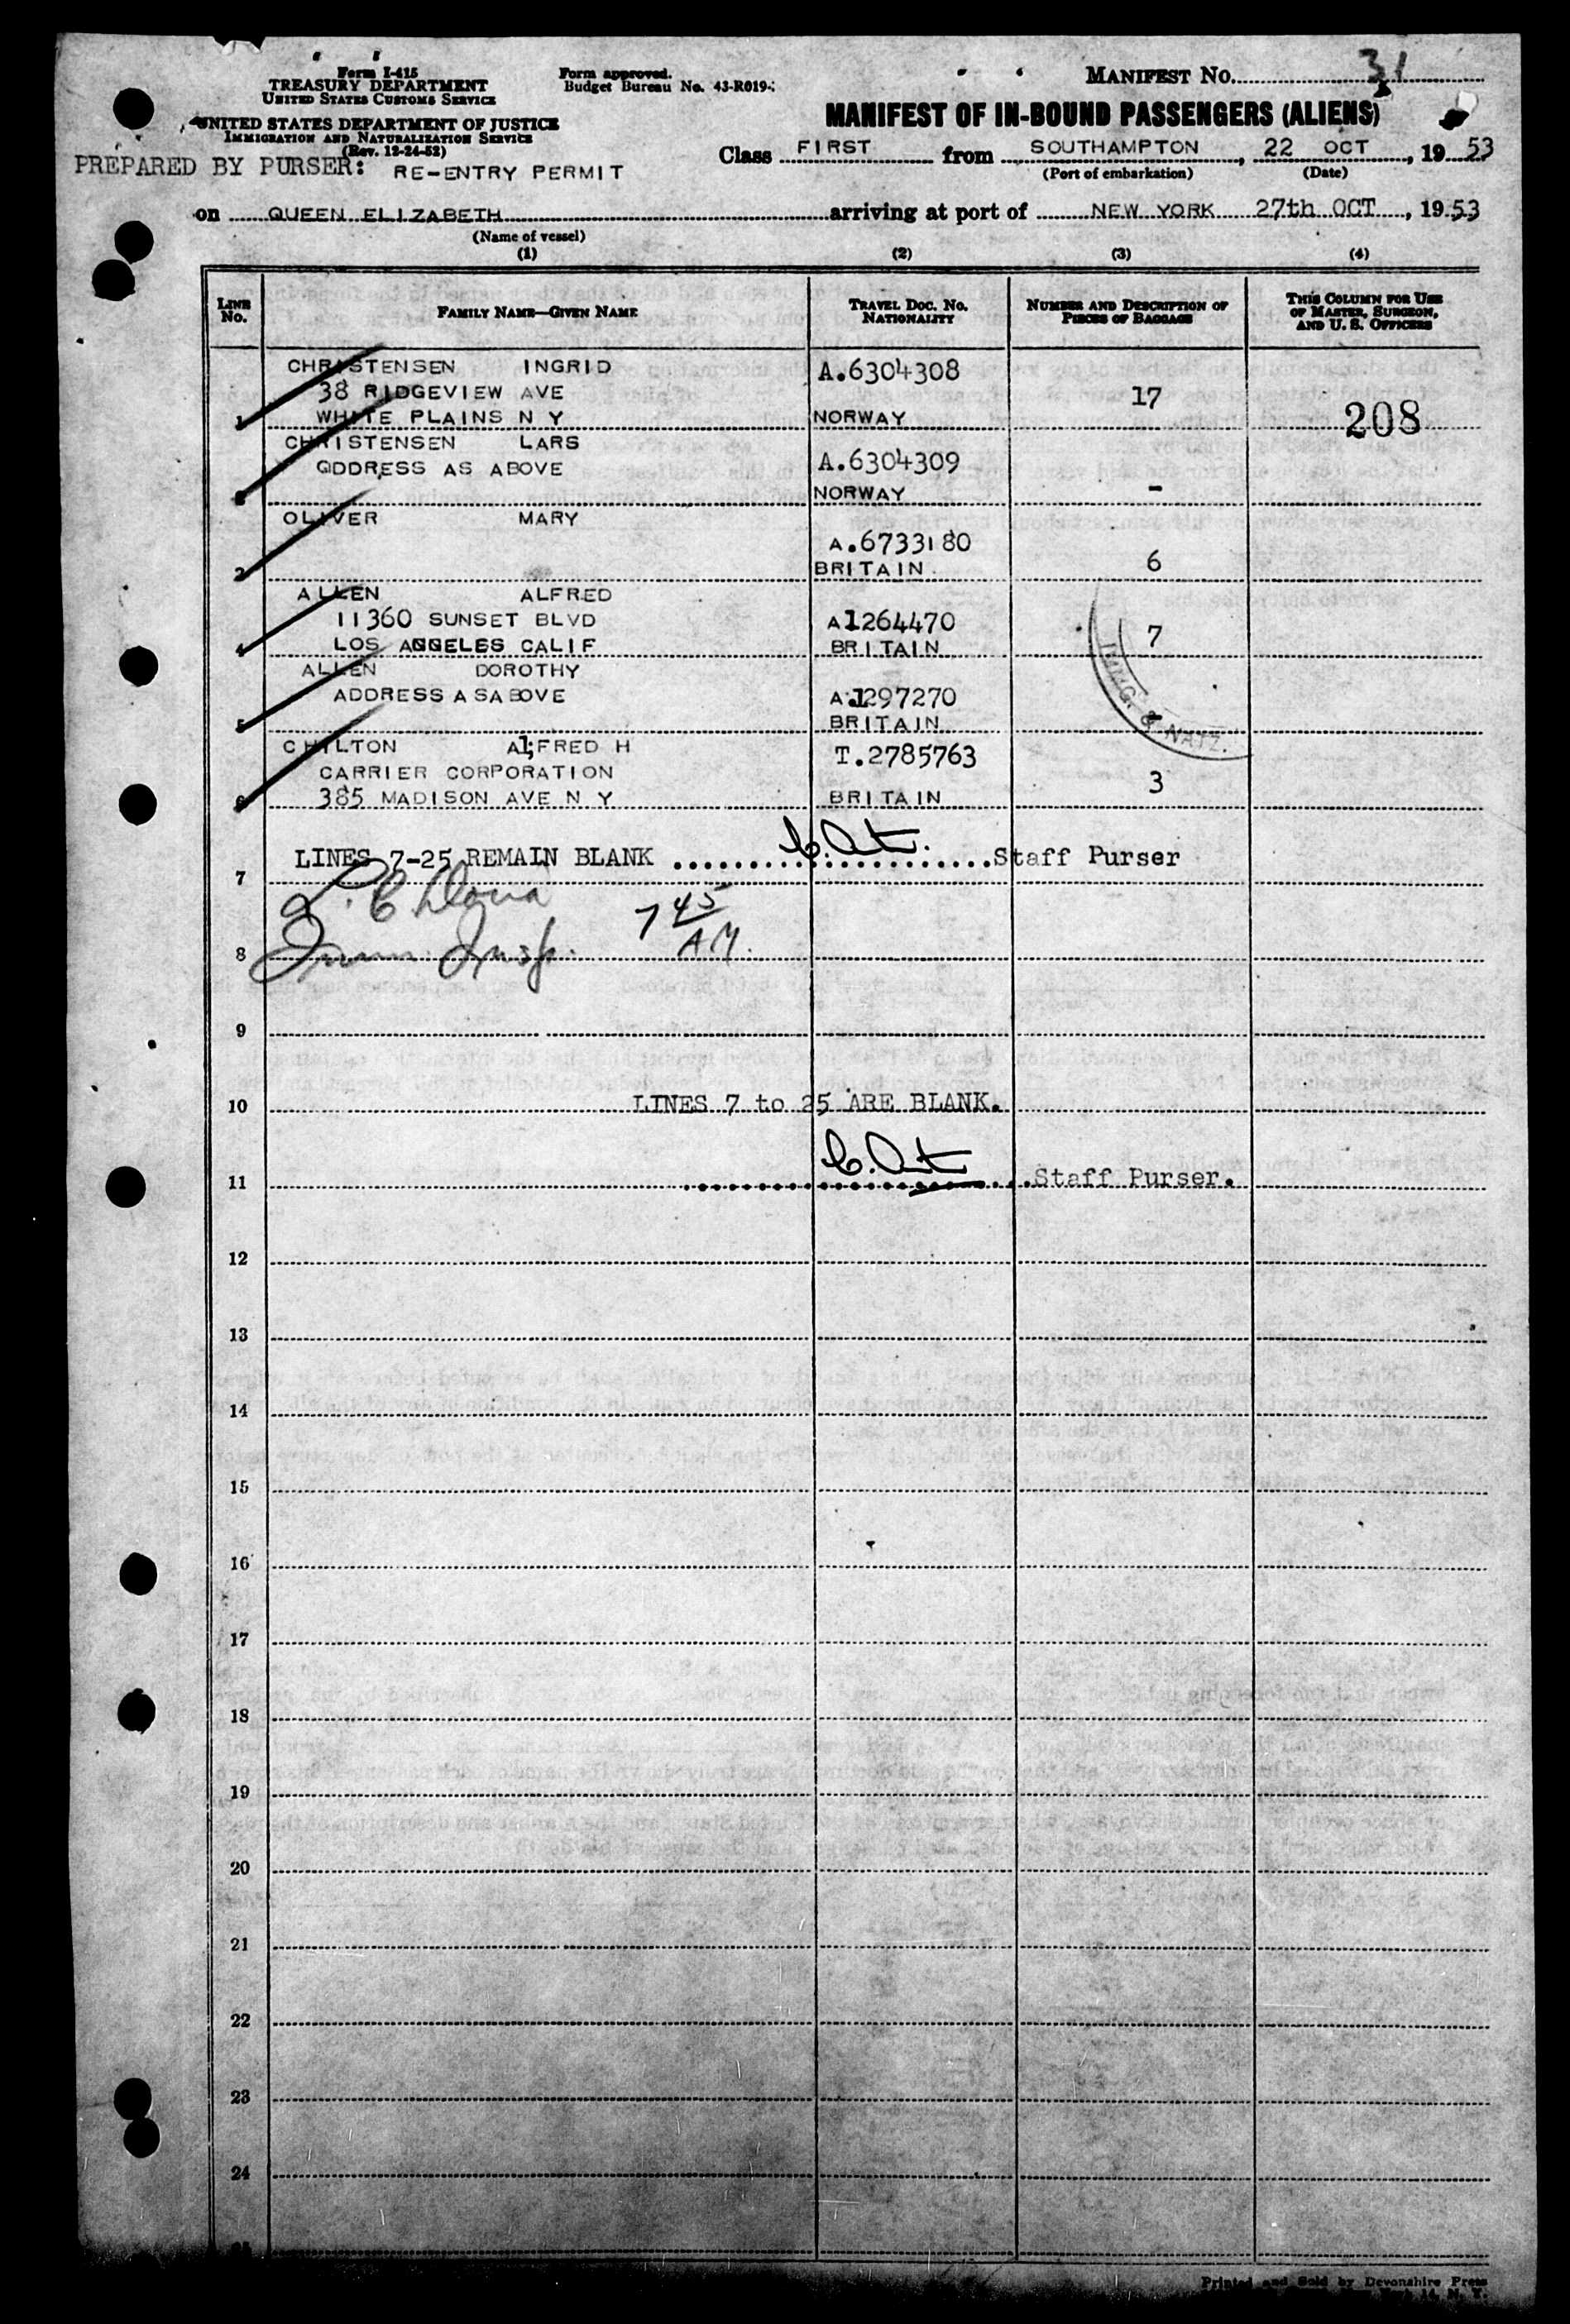 Form I-415
TREASURY DEPARTMENT
UNITED STATES CUSTOMS SERVICE
UNITED STATES DEPARTMENT OF JUSTICE
IMMIGRATION AND NATURALIZATION SERVICE
(Rev. 12-24-52)
Form approved.
Budget Bureau No. 43-R019-
MANIFEST NO. 31
MANIFEST OF IN-BOUND PASSENGERS (ALIENS)
PREPARED BY PURSER: RE-ENTRY PERMIT
Class FIRST from SOUTHAMPTON, 22 OCT, 1953
(Port of embarkation) (Date)
on QUEEN ELIZABETH arriving at port of NEW YORK 27th OCT, 1953
(Name of vessel)
(1) (2) (3) (4)
LINE NO. FAMILY NAME—GIVEN NAME TRAVEL DOC. NO. NATIONALITY NUMBER AND DESCRIPTION OF PIECES OF BAGGAGE THIS COLUMN FOR USE OF MASTER, SURGEON, AND U. S. OFFICERS
CHRISTENSEN INGRID A.6304308
38 RIDGEVIEW AVE 17
1 WHITE PLAINS N Y NORWAY 208
CHRISTENSEN LARS A.6304309
QDDRESS AS ABOVE
NORWAY -
OLIVER MARY
A.6733180
3 BRITAIN 6
ALLEN ALFRED
11360 SUNSET BLVD A1264470 7
4 LOS ANGELES CALIF BRITAIN
ALLEN DOROTHY
ADDRESS ASABOVE A1297270
5 BRITAIN
IMMIG. & NATZ.
CHILTON Al;FRED H T.2785763
CARRIER CORPORATION 3
6 385 MADISON AVE N Y BRITAIN
LINES 7-25 REMAIN BLANK ..................Staff Purser
7
7 45 AM.
8 Imm. Insp.
9
10 LINES 7 to 25 ARE BLANK.
11 ..................Staff Purser.
12
13
14
15
16
17
18
19
20
21
22
23
24
25
Printed and Sold by Devonshire Press